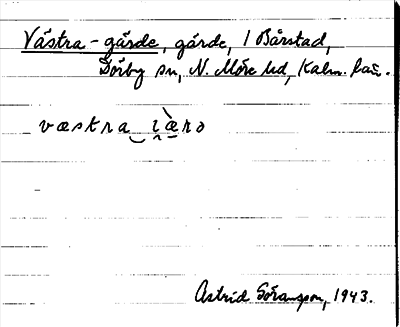 Västra-gärde, gärde, 1 Bårstad,
Dörby sn, N. Möre hd, Kalm. län.
væstra ı̯ærə
Astrid Göransson, 1943.